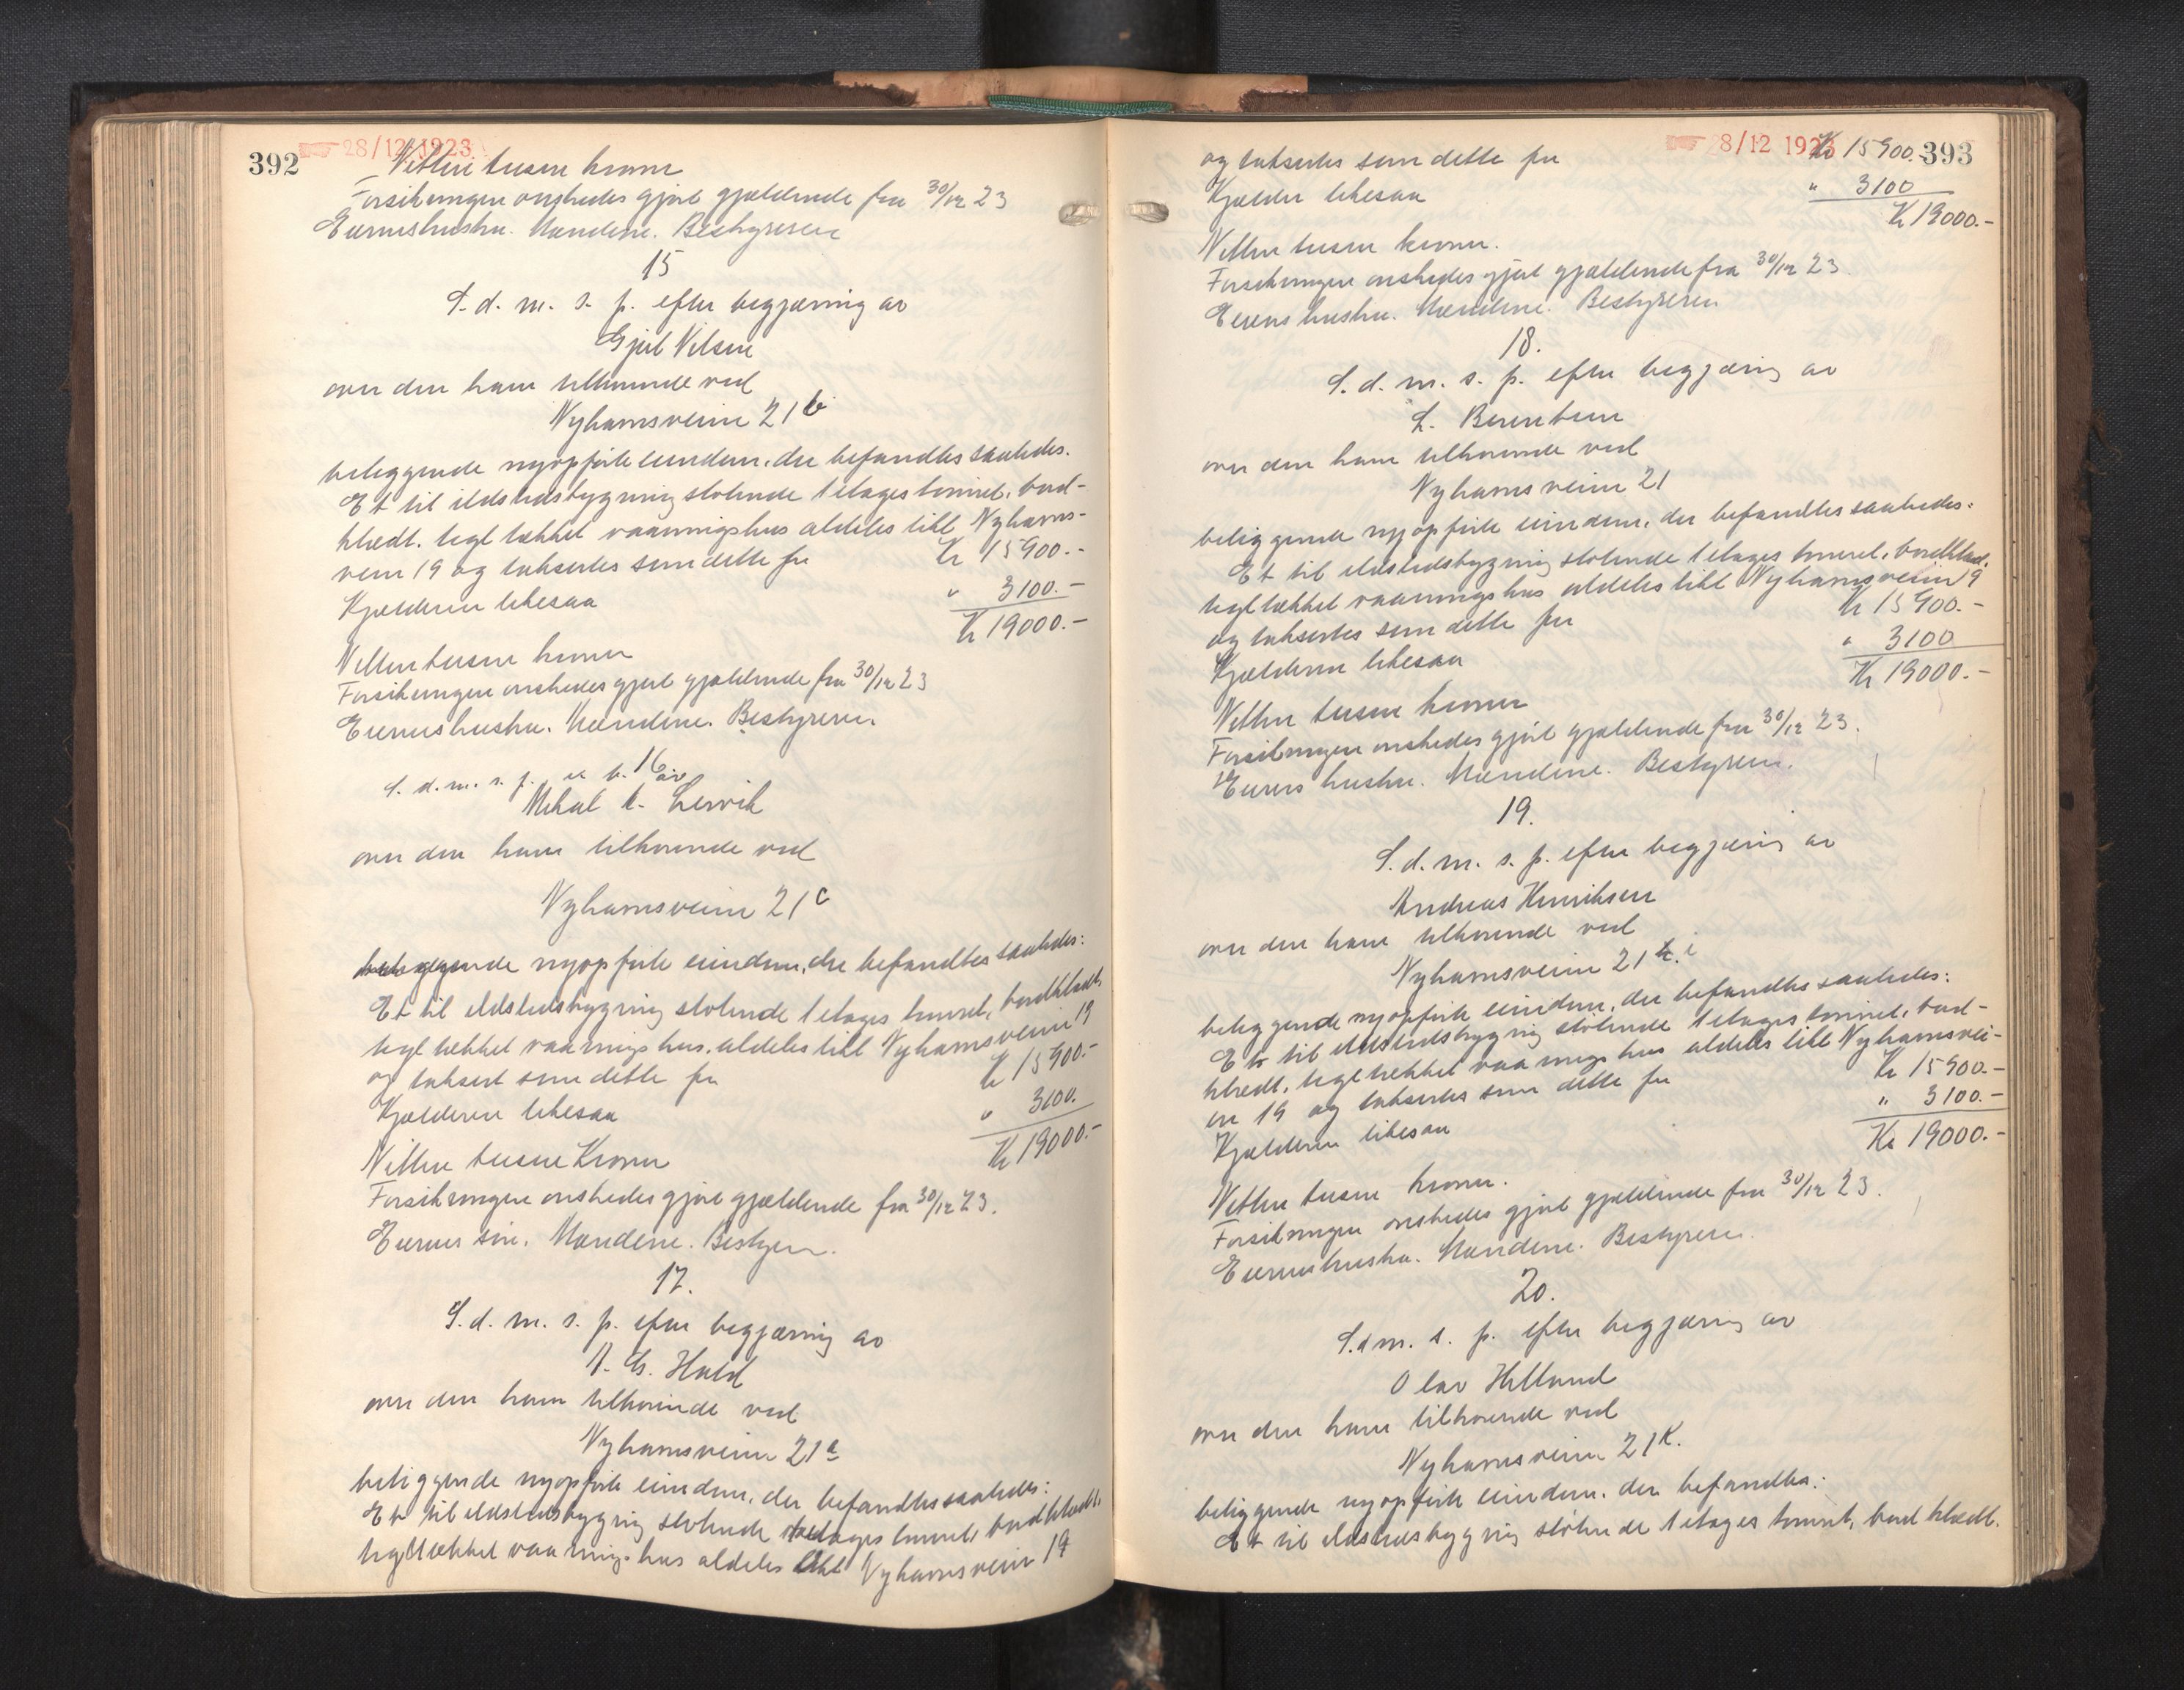 392
28/12 1923
Nitten tusen kroner
Forsikringen ønskedes gjort gjældende fra 30/12 23
Eierens hustru. Mændene. Bestyreren
15
S. d. m. s. p. efter begjæring av
Gjert Nilsen
over den ham tilhørende ved
Nyhavnsveien 21 b
beliggende nyopførte eiendom, der befandtes saaledes.
Et til ildstedsbygning støtende 1 etages tømret, bord-
klædt, tegltækket vaaningshus aldeles likt Nyhavns-
veien 19 og takseres som dette for Kr 15900.-
Kjælderen likesaa " 3100.-
Kr 19000.-
Nitten tusen kroner
Forsikringen ønskedes gjort gjældende fra 30/12 23
Eierens hustru. Mændene. Bestyreren.
16
S. d. m. s. p. e. b. av
Mikal K. Lervik
over den ham tilhørende ved
Nyhavnsveien 21 c
beliggende nyopførte eiendom, der befandtes saaledes:
Et til ildstedsbygning støtende 1 etages tømret, bordklædt,
tegltækket vaaningshus, aldeles likt Nyhavnsveien 19
og taksert som dette for Kr 15900.-
Kjælderen likesaa " 3100.
Kr 19000.-
Nitten tusen Kroner
Forsikringen ønskedes gjort gjældende fra 30/12 23.
Eieren sin. Mændene. Bestyren.
17.
S. d. m. s. p. efter begjæring av
A. G. Hald
over den ham tilhørende ved
Nyhavnsveien 21 a
beliggende nyopførte eiendom, der befandtes saaledes:
Et til ildstedsbygning støtende etages tømret, bordklædt,
tegltækket vaanings-hus aldeles likt Nyhavnsveien 19
28/12 1923
393
og takseres som dette for Kr 15900.-
Kjælder likesaa " 3100
Kr 19000.-
Nitten tusen kroner.
Forsikringen ønskedes gjort gjældende fra 30/12 23.
Eierens hustru. Mændene. Bestyreren
18.
S. d. m. s. p. efter begjæring av
L. Berentsen
over den ham tilhørende ved
Nyhavnsveien 21
beliggende nyopførte eiendom, der befandtes saaledes:
Et til ildstedsbygning støtende 1 etages tømret, bordklæd.
tegltækket vaaningshus aldeles likt Nyhavnsveien 19
og takseres som dette for Kr 15900.-
Kjælderen likesaa " 3100
Kr 19000.-
Nitten tusen kroner
Forsikringen ønskedes gjort gjældende fra 30/12 23.
Eierens hustru. Mændene. Bestyreren.
19.
S. d. m. s. p. efter begjæring av
Andreas Henriksen
over den ham tilhørende ved
Nyhavnsveien 21 i
beliggende nyopførte eiendom, der befandtes saaledes:
Et til ildstedsbygning støtende 1 etages tømret, bord-
klædt, tegltækket vaaningshus aldeles likt Nyhavnsvei-
en 19 og takseres som dette for Kr 15900.-
Kjælderen likesaa " 3100.-
Kr 19000.-
Nitten tusen kroner.
Forsikringen ønskedes gjort gjældende fra 30/12 23.
Eierens hustru. Mændene. Bestyreren.
20.
S. d m. s. p. efter begjæring av
Olav Helland
over den ham tilhørende ved
Nyhavnsveien 21 K.
beliggende nyopførte eiendom, der befandtes:
Et til ildstedsbygning støtende 1 etages tømret, bordklædt.